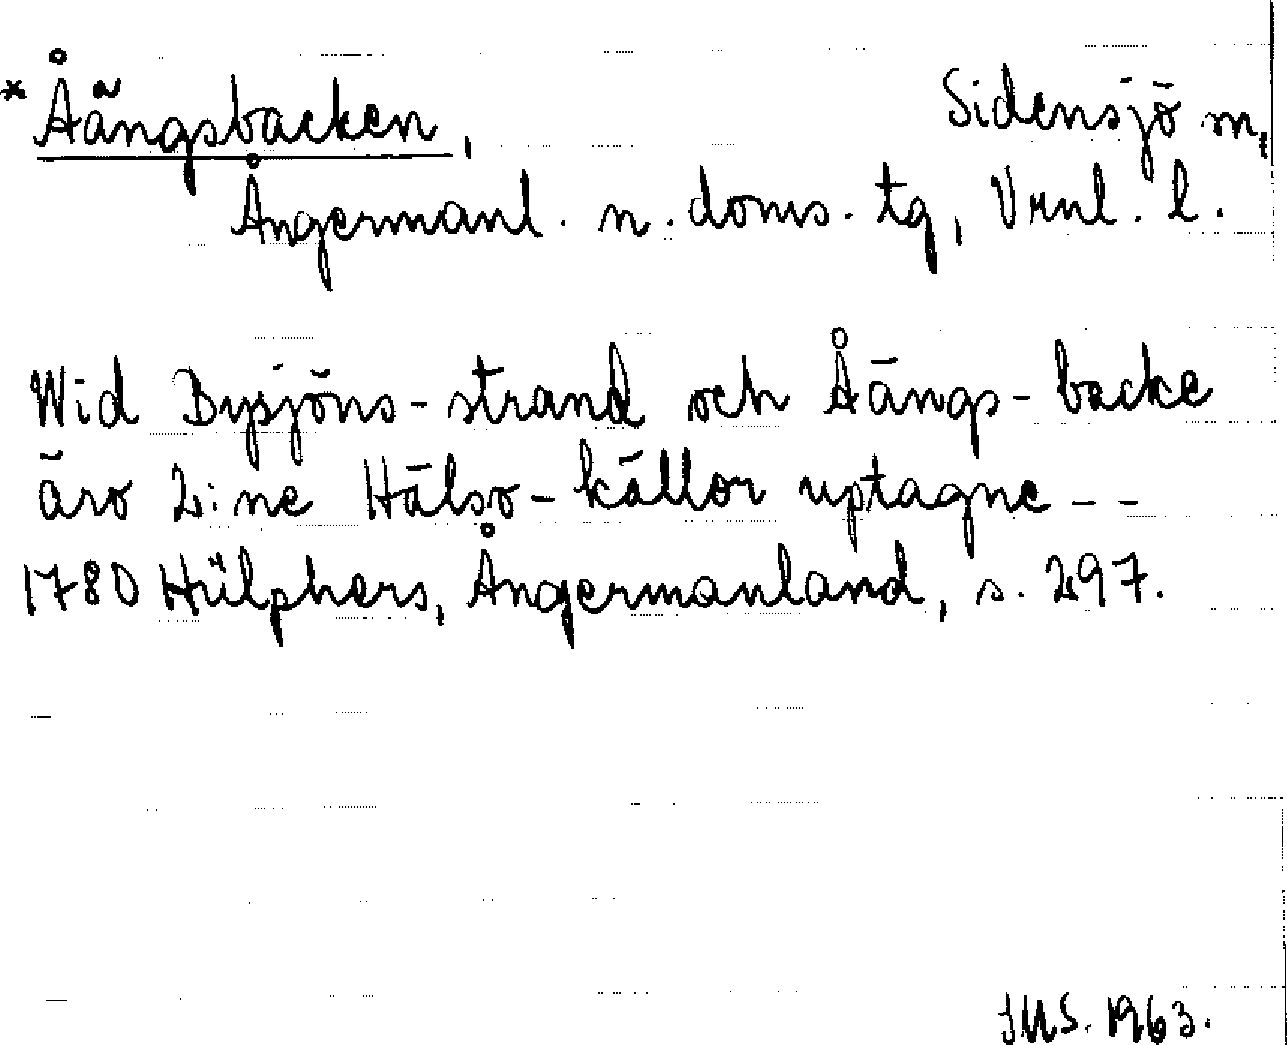 * Åängsbacken, Sidensjö sn,
Ångermanl. n. doms. tg, Vrnl. l.
Wid Bysjöns-strand och Åängs-backe
äro 2:ne Hälso-källor uptagne - -
1780 Hülphers, Ångermanland, s. 297.
JUS. 1963.